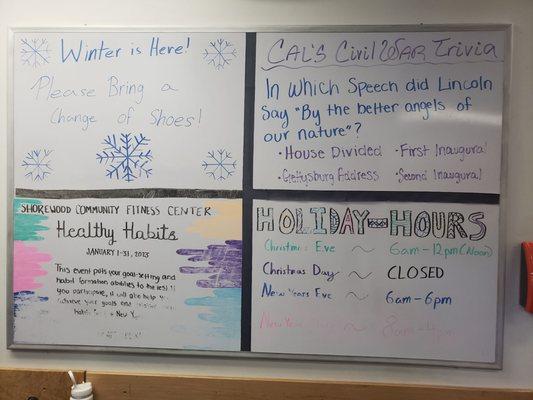 Winter is Here!
Please Bring a
Change of Shoes!
CAL'S Civil WAR Trivia
In Which Speech did Lincoln
Say "By the better angels of
our nature"?
• House Divided • First Inaugural
• Gettysburg Address • Second Inaugural
SHOREWOOD COMMUNITY FITNESS CENTER
Healthy Habits
JANUARY 1-31, 2023
This event puts your goal-setting and
habit formation abilities to the test! If
you participate, it will also help you
achieve your goals and
habit
HOLIDAY HOURS
Christmas Eve ~ 6am-12pm (Noon)
Christmas Day ~ CLOSED
New Years Eve ~ 6am-6pm
New Year ~ 8am-4pm